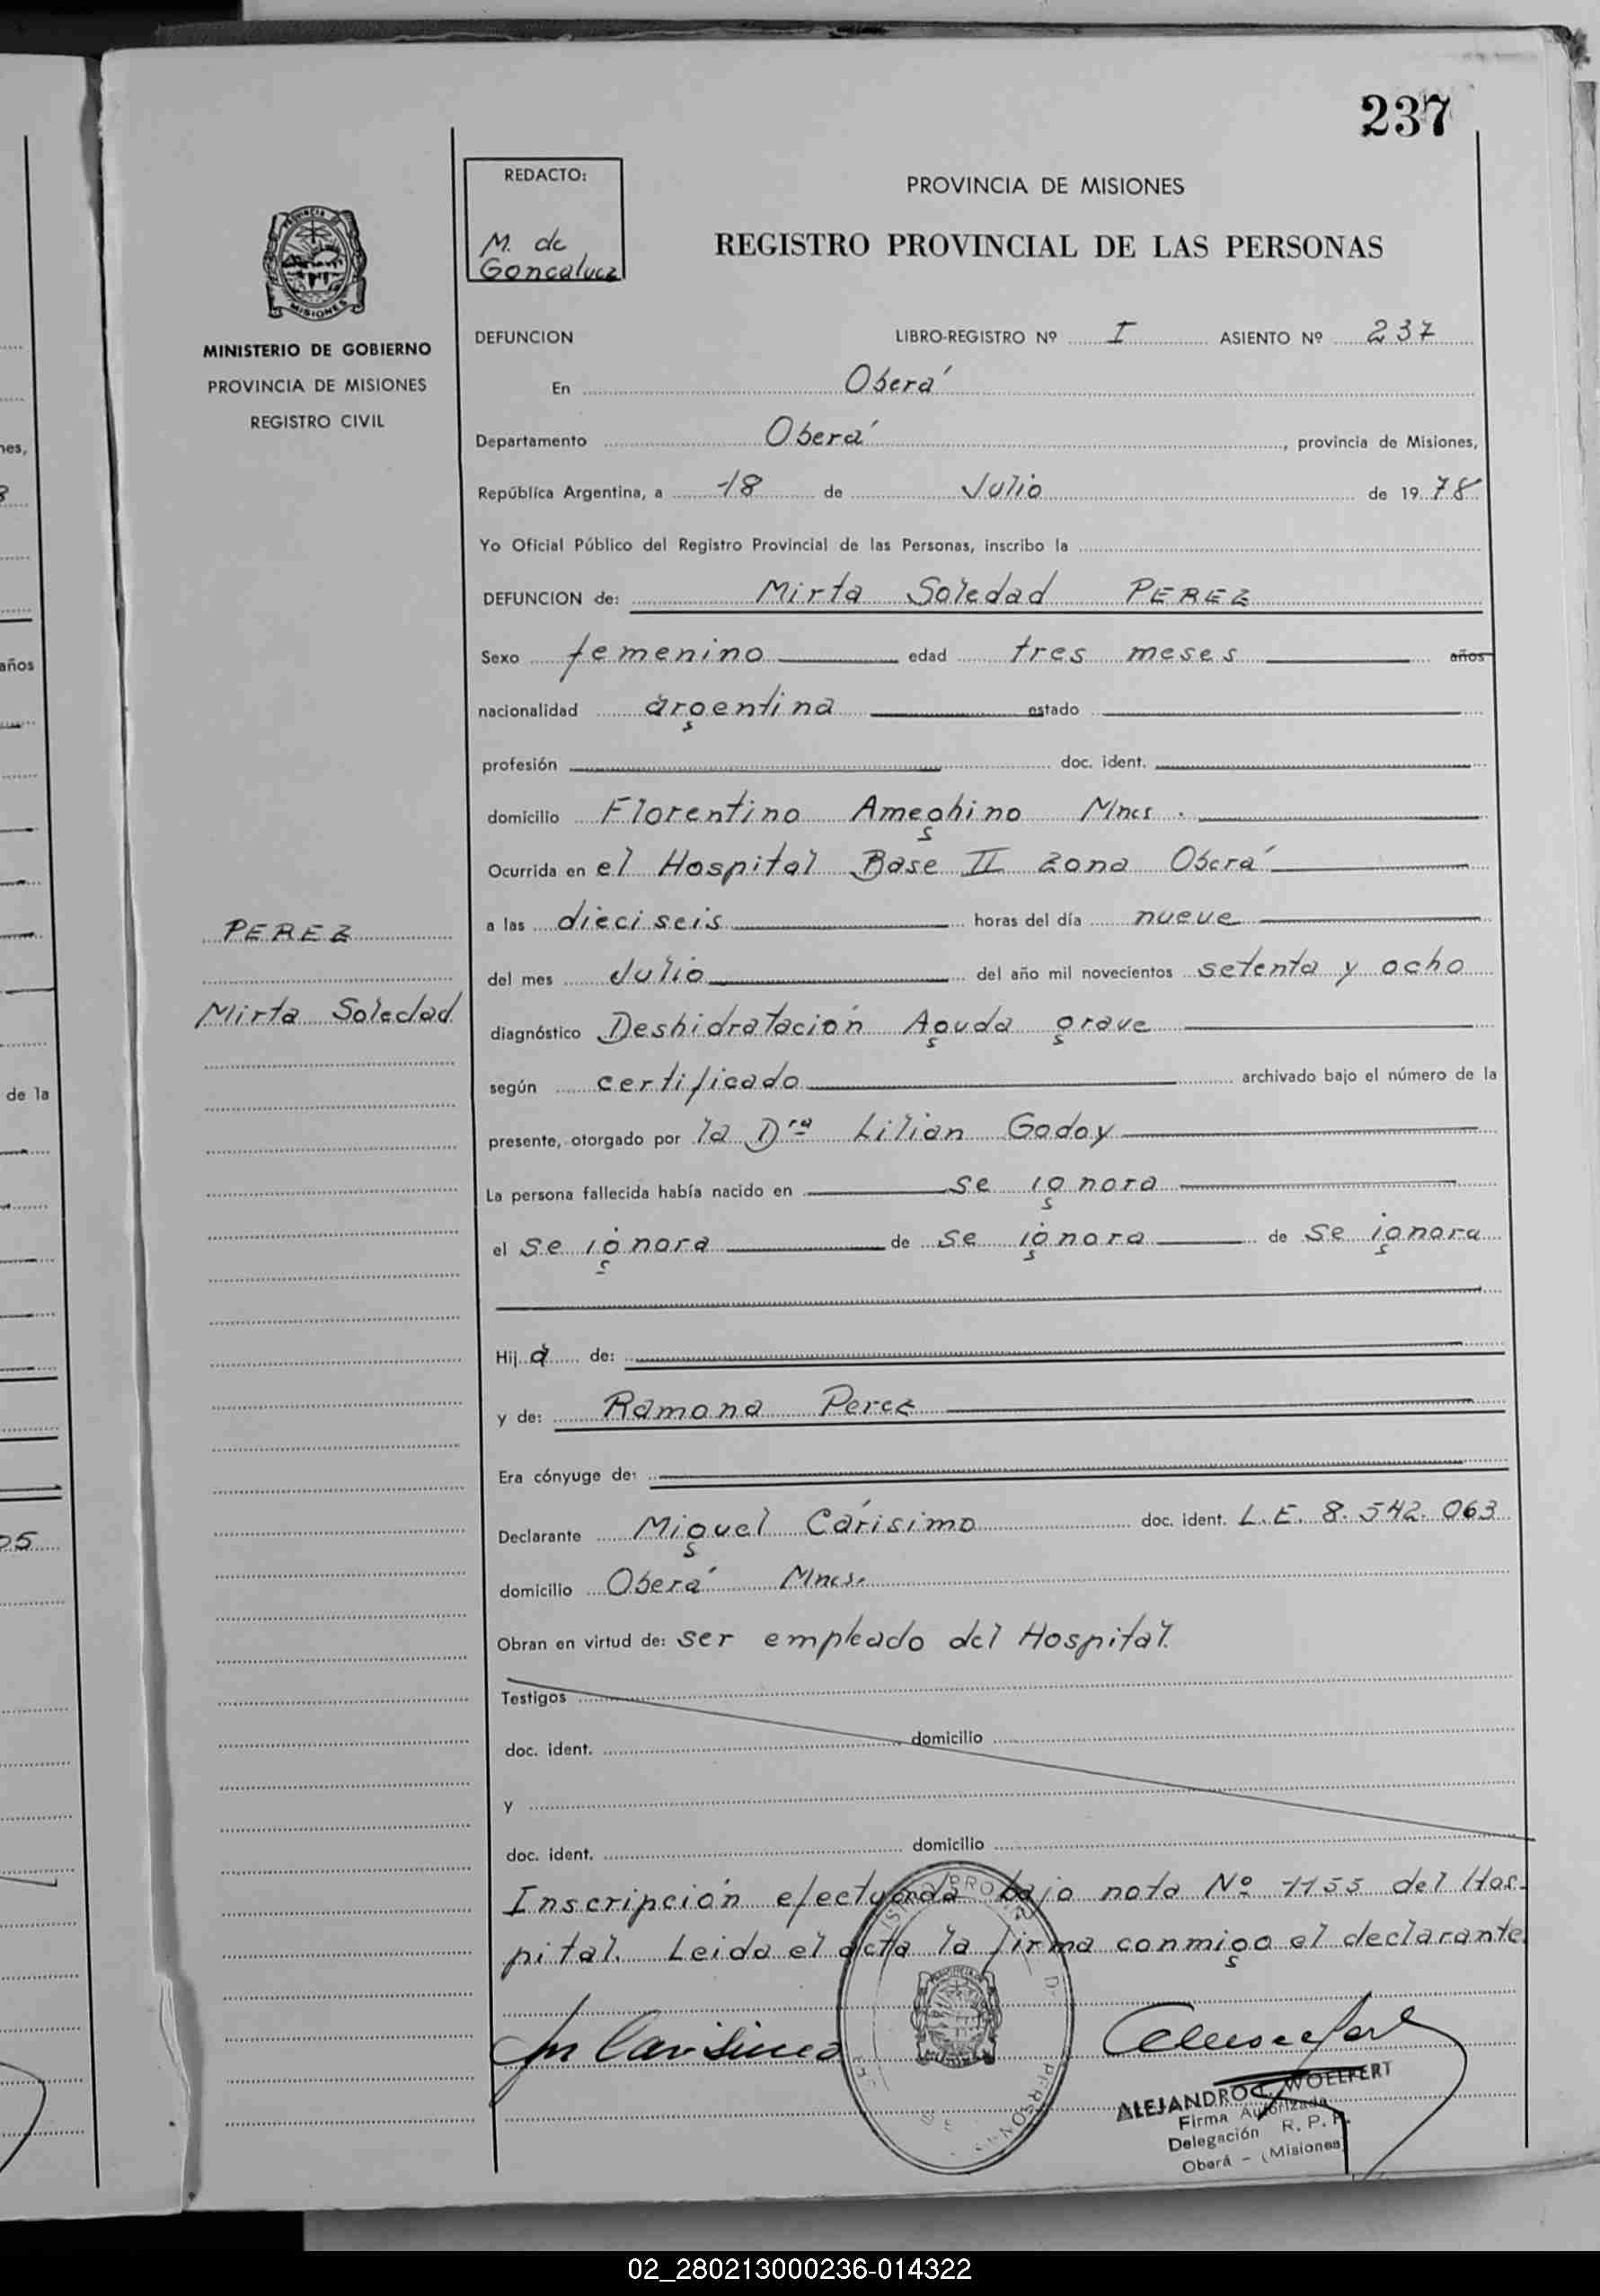 237
REDACTO:
M. de
Goncalvez
PROVINCIA DE MISIONES
REGISTRO PROVINCIAL DE LAS PERSONAS
PROVINCIA DE
MISIONES
MINISTERIO DE GOBIERNO
PROVINCIA DE MISIONES
REGISTRO CIVIL
DEFUNCION LIBRO-REGISTRO Nº I ASIENTO Nº 237
En Oberá
Departamento Oberá, provincia de Misiones,
República Argentina, a 18 de Julio de 1978
Yo Oficial Público del Registro Provincial de las Personas, inscribo la
DEFUNCION de: Mirta Soledad PEREZ
Sexo femenino edad tres meses años
nacionalidad argentina estado
profesión doc. ident.
domicilio Florentino Ameghino Mnes.
Ocurrida en el Hospital Base II zona Oberá
a las dieciseis horas del día nueve
del mes Julio del año mil novecientos setenta y ocho
diagnóstico Deshidratación Aguda grave
según certificado archivado bajo el número de la
presente, otorgado por la Dra Lilian Godoy
La persona fallecida había nacido en se ignora
el se ignora de se ignora de se ignora
Hija de:
y de: Ramona Perez
Era cónyuge de:
Declarante Miguel Cárisimo doc. ident. L.E. 8.542.063
domicilio Oberá Mnes.
Obran en virtud de: ser empleado del Hospital.
Testigos
doc. ident. domicilio
y
doc. ident. domicilio
Inscripción efectuada bajo nota Nº 1155 del Hos-
pital. Leida el acta la firma conmigo el declarante.
PEREZ
Mirta Soledad
ALEJANDRO C. WOELFERT
Firma Autorizada
Delegación R. P. P.
Oberá - (Misiones)
nes,
años
de la
05
02_280213000236-014322